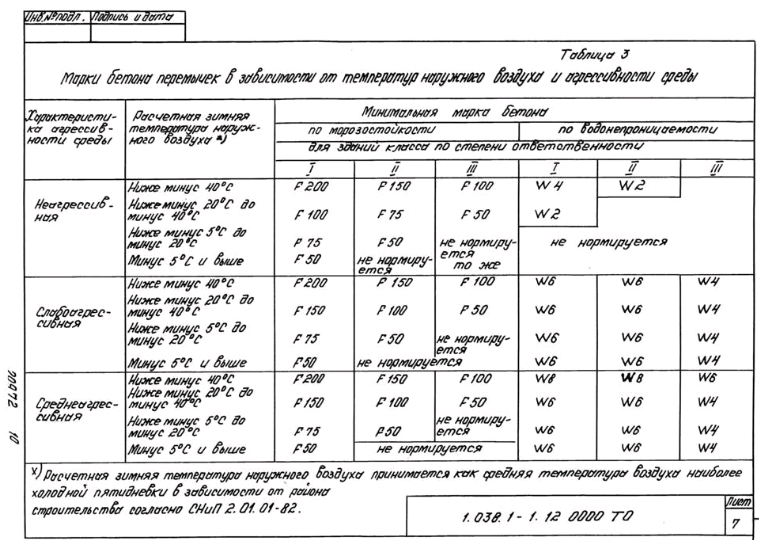 Инв.№подл. Подпись и дата
Таблица 3
Марки бетона перемычек в зависимости от температур наружного воздуха и агрессивности среды
Характеристи- Расчетная зимняя Минимальная марка бетона
ка агрессив- температура наруж- по морозостойкости по водонепроницаемости
ности среды ного воздуха х) для зданий класса по степени ответственности
I II III I II III
Неагрессив- Ниже минус 40°С F 200 F 150 F 100 W 4 W 2
ная Ниже минус 20°С до
минус 40°С F 100 F 75 F 50 W 2
Ниже минус 5°С до
минус 20°С F 75 F 50 не нормиру- не нормируется
ется
Минус 5°С и выше F 50 не нормиру- то же
ется
Слабоагрес- Ниже минус 40°С F 200 F 150 F 100 W6 W6 W4
сивная Ниже минус 20°С до
минус 40°С F 150 F 100 F 50 W6 W6 W4
Ниже минус 5°С до
минус 20°С F 75 F 50 не нормиру- W6 W6 W4
ется
Минус 5°С и выше F 50 не нормируется W6 W6 W4
Среднеагрес- Ниже минус 40°С F 200 F 150 F 100 W8 W8 W6
сивная Ниже минус 20°С до
минус 40°С F 150 F 100 F 50 W6 W6 W4
Ниже минус 5°С до не нормиру-
минус 20°С F 75 F 50 ется W6 W6 W4
Минус 5°С и выше F 50 не нормируется W6 W6 W4
х) Расчетная зимняя температура наружного воздуха принимается как средняя температура воздуха наиболее
холодной пятидневки в зависимости от района
строительства согласно СНиП 2.01.01-82.
1.038.1-1.12 0000 ТО
Лист
7
10